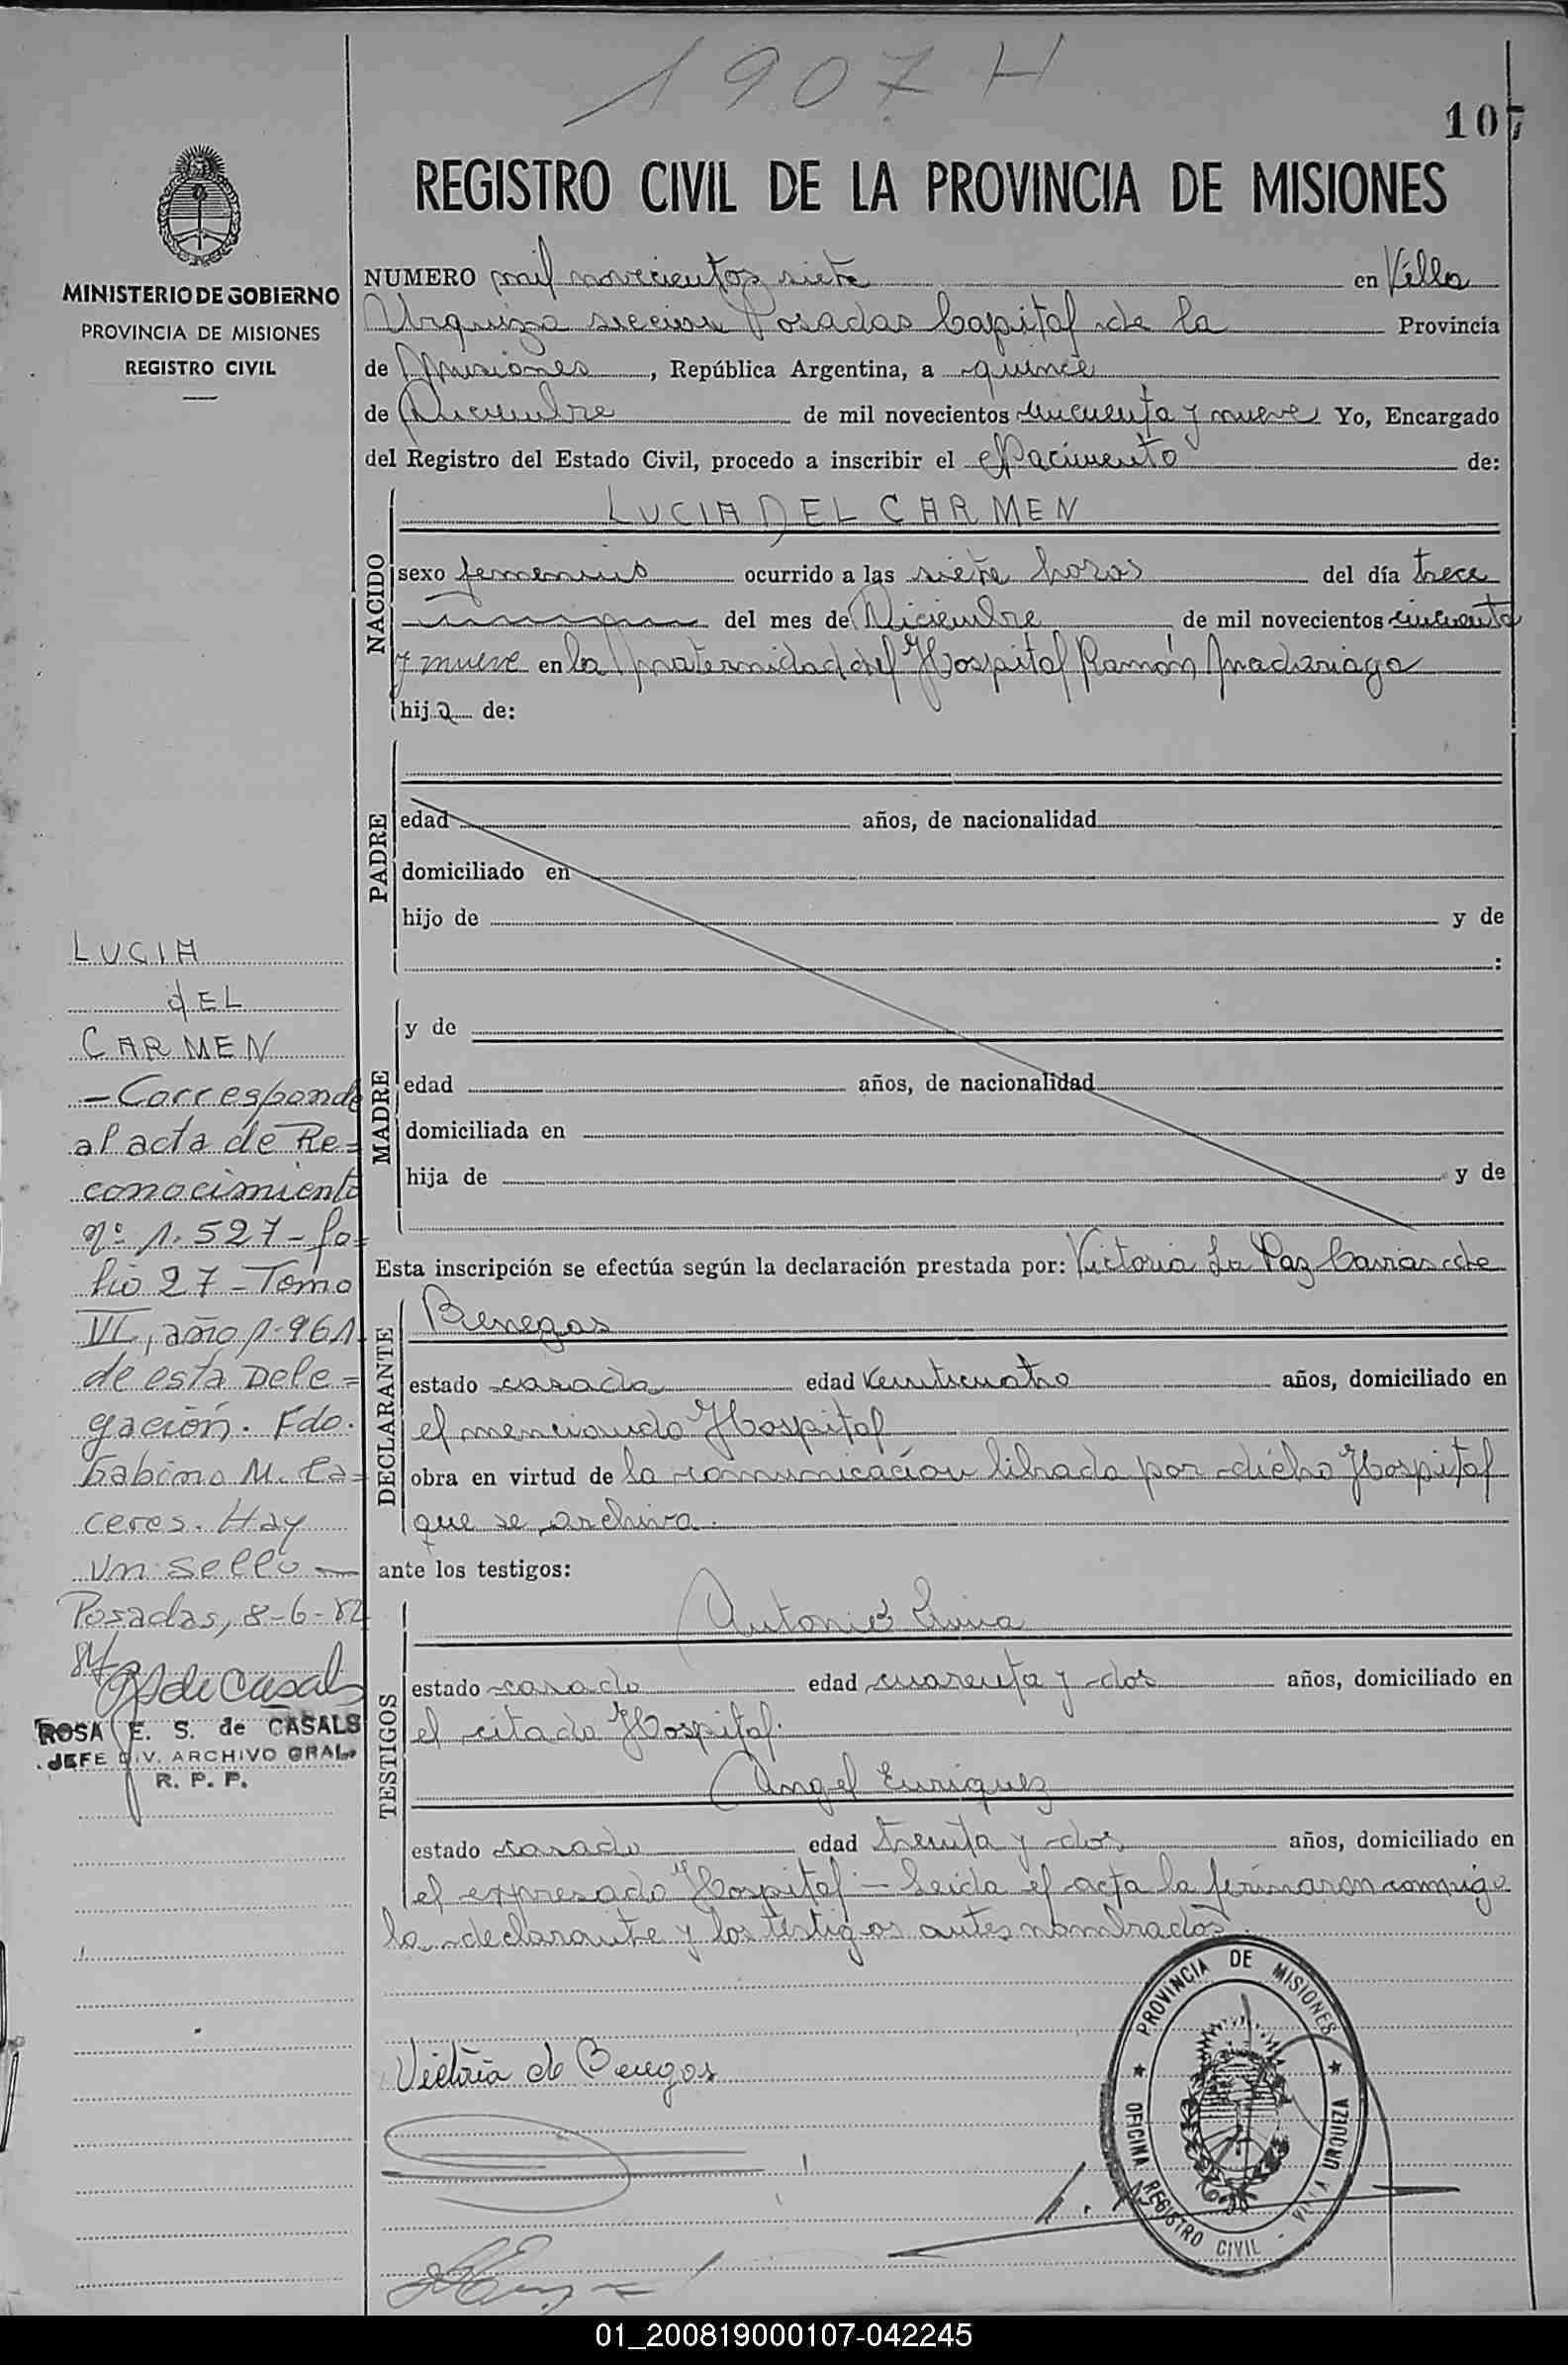 1907 H
107
REGISTRO CIVIL DE LA PROVINCIA DE MISIONES
MINISTERIO DE GOBIERNO
PROVINCIA DE MISIONES
REGISTRO CIVIL
NUMERO mil novecientos siete en Villa
Urquiza seccion Posadas Capital de la Provincia
de Misiones, República Argentina, a quince
de Diciembre de mil novecientos cincuenta y nueve Yo, Encargado
del Registro del Estado Civil, procedo a inscribir el Nacimiento de:
LUCIA DEL CARMEN
NACIDO
sexo femenino ocurrido a las siete horas del día trece
del mes de Diciembre de mil novecientos cincuenta
y nueve en la Maternidad del Hospital Ramón Madariaga
hija de:
PADRE
edad años, de nacionalidad
domiciliado en
hijo de y de
:
MADRE
y de
edad años, de nacionalidad
domiciliada en
hija de y de
Esta inscripción se efectúa según la declaración prestada por: Victoria La Paz de
DECLARANTE
Benegas
estado casada edad veinticuatro años, domiciliado en
el mencionado Hospital
obra en virtud de la comunicación librada por dicho Hospital
que se archiva.
ante los testigos:
TESTIGOS
Antonio
estado casado edad cuarenta y dos años, domiciliado en
el citado Hospital.
Angel Enriquez
estado casado edad treinta y dos años, domiciliado en
el expresado Hospital - Leida el acta la firmaron conmigo
la declarante y los testigos antes nombrados.
Victoria de Benegas
PROVINCIA DE MISIONES
OFICINA REGISTRO CIVIL - VILLA URQUIZA
LUCIA
dEL
CARMEN
- Corresponde
al acta de Re=
conocimiento
nº 1.527 - fo=
lio 27 - Tomo
VI, año 1.961
de esta Dele=
gación. Fdo.
Gabino M. Ca=
ceres. Hay
un sello —
Posadas, 8-6-82
RS de Casals
ROSA E. S. de CASALS
JEFE DIV. ARCHIVO GRAL.
R. P. P.
01_200819000107-042245